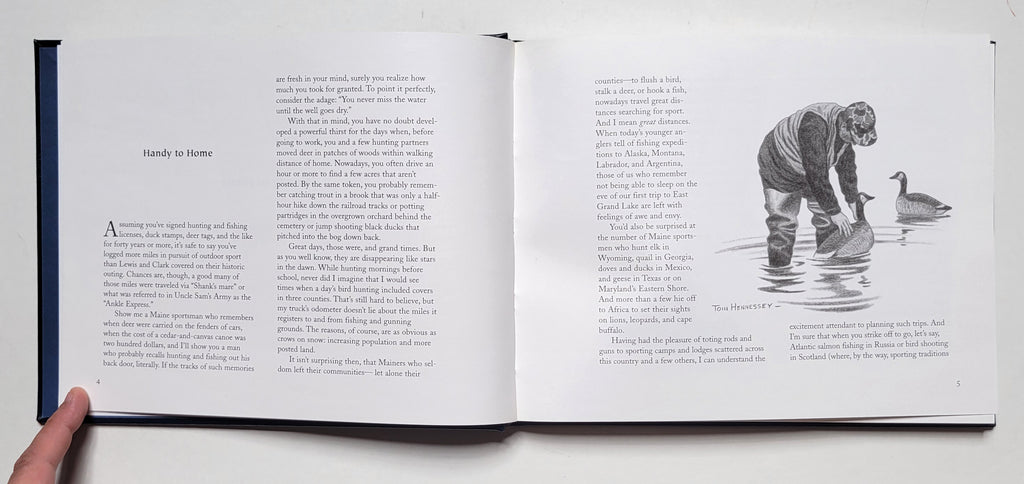 Handy to Home
Assuming you've signed hunting and fishing
licenses, duck stamps, deer tags, and the like
for forty years or more, it's safe to say you've
logged more miles in pursuit of outdoor sport
than Lewis and Clark covered on their historic
outing. Chances are, though, a good many of
those miles were traveled via "Shank's mare" or
what was referred to in Uncle Sam's Army as the
"Ankle Express."
Show me a Maine sportsman who remembers
when deer were carried on the fenders of cars,
when the cost of a cedar-and-canvas canoe was
two hundred dollars, and I'll show you a man
who probably recalls hunting and fishing out his
back door, literally. If the tracks of such memories
4
are fresh in your mind, surely you realize how
much you took for granted. To point it perfectly,
consider the adage: "You never miss the water
until the well goes dry."
With that in mind, you have no doubt devel-
oped a powerful thirst for the days when, before
going to work, you and a few hunting partners
moved deer in patches of woods within walking
distance of home. Nowadays, you often drive an
hour or more to find a few acres that aren't
posted. By the same token, you probably remem-
ber catching trout in a brook that was only a half-
hour hike down the railroad tracks or potting
partridges in the overgrown orchard behind the
cemetery or jump shooting black ducks that
pitched into the bog down back.
Great days, those were, and grand times. But
as you well know, they are disappearing like stars
in the dawn. While hunting mornings before
school, never did I imagine that I would see
times when a day's bird hunting included covers
in three counties. That's still hard to believe, but
my truck's odometer doesn't lie about the miles it
registers to and from fishing and gunning
grounds. The reasons, of course, are as obvious as
crows on snow: increasing population and more
posted land.
It isn't surprising, then, that Mainers who sel-
dom left their communities— let alone their
counties—to flush a bird,
stalk a deer, or hook a fish,
nowadays travel great dis-
tances searching for sport.
And I mean great distances.
When today's younger an-
glers tell of fishing expedi-
tions to Alaska, Montana,
Labrador, and Argentina,
those of us who remember
not being able to sleep on the
eve of our first trip to East
Grand Lake are left with
feelings of awe and envy.
You'd also be surprised at
the number of Maine sports-
men who hunt elk in
Wyoming, quail in Georgia,
doves and ducks in Mexico,
and geese in Texas or on
Maryland's Eastern Shore.
And more than a few hie off
to Africa to set their sights
on lions, leopards, and cape
buffalo.
Having had the pleasure of toting rods and
guns to sporting camps and lodges scattered across
this country and a few others, I can understand the
Tom Hennessey
excitement attendant to planning such trips. And
I'm sure that when you strike off to go, let's say,
Atlantic salmon fishing in Russia or bird shooting
in Scotland (where, by the way, sporting traditions
5